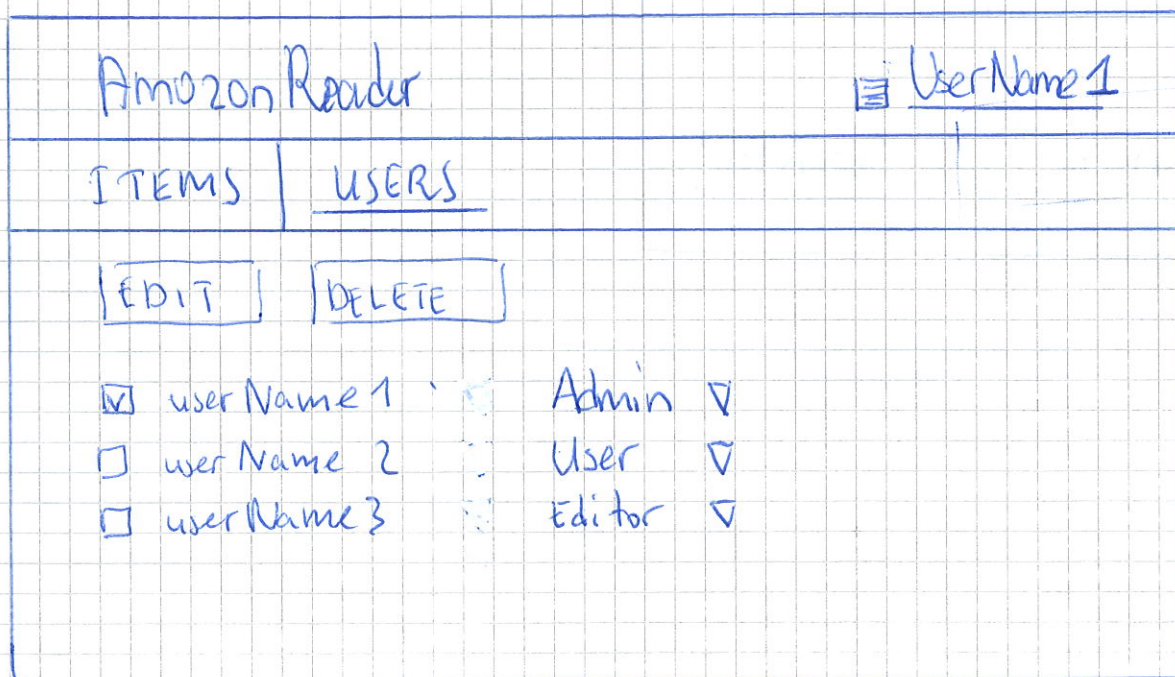 AmozonReader UserName1
ITEMS USERS
EDIT DELETE
userName1 Admin
userName2 User
userName3 Editor